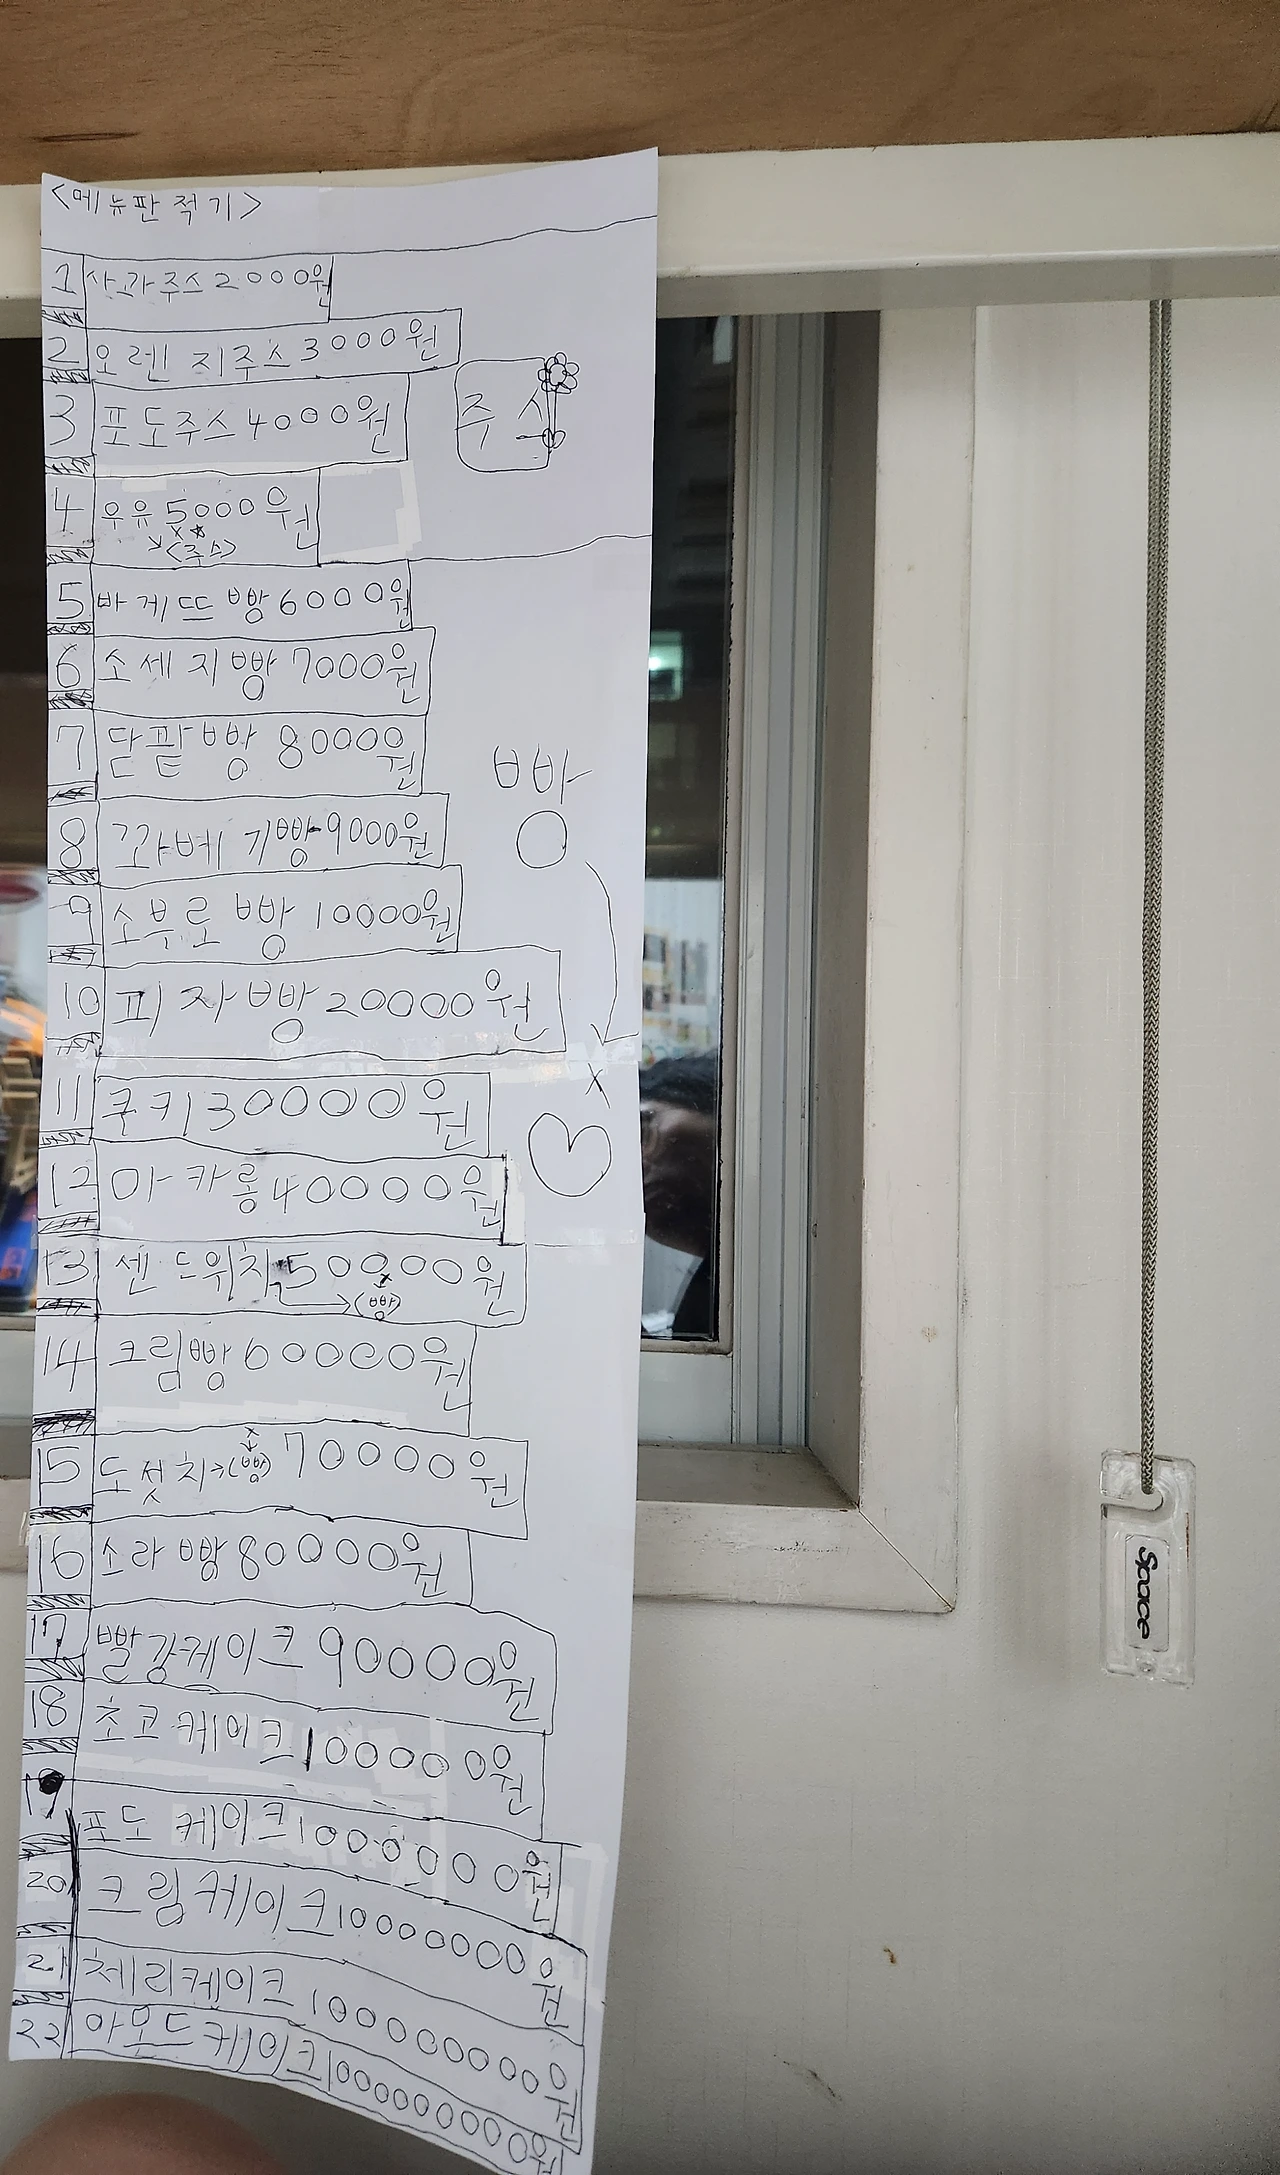 <메뉴판 적기>
1 사과주스 2000원
2 오렌지주스 3000원
3 포도주스 4000원
주스
4 우유 5000원
<주스>
5 바게뜨빵 6000원
6 소세지빵 7000원
7 단팥빵 8000원
빵
8 꽈베기빵 9000원
9 소부로빵 10000원
10 피자빵 20000원
11 쿠키 30000원
12 마카롱 40000원
13 센드위치 50000원
(빵)
14 크림빵 60000원
15 도섯치→(빵) 70000원
16 소라빵 80000원
17 빨강케이크 90000원
18 초코케이크 100000원
19 포도케이크 1000000원
20 크림케이크 10000000원
21 체리케이크 100000000원
22 아몬드케이크 1000000000원
Space